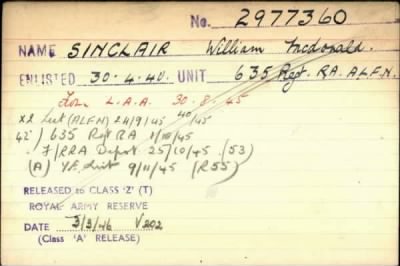 No. 2977360
NAME SINCLAIR William Mcdonald.
ENLISTED 30.4.40. UNIT 635 Regt. RA. ALF.N.
L.A.A. 30.8.45
X2 List (ALFN) 24/9/45 40/45
42) 635 Rgt RA 1/10/45
F/RRA Depot 25/10/45 (53)
(A) Y.E. List 9/11/45 (R55)
RELEASED to CLASS 'Z' (T)
ROYAL ARMY RESERVE
DATE 3/3/46 V202
(Class 'A' RELEASE)